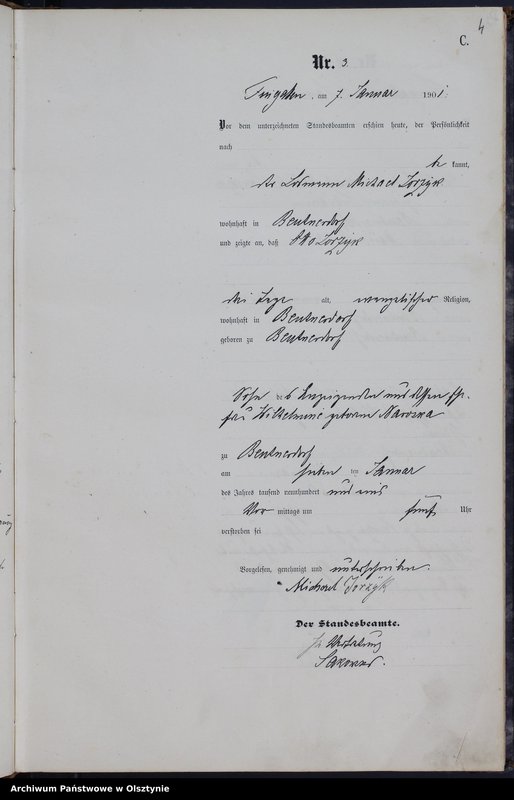 4
C.
Nr. 3.
am 7. Januar 1901
Vor dem unterzeichneten Standesbeamten erschien heute, der Persönlichkeit
nach
be kannt,
der Losmann Michael Jorzyk
wohnhaft in Beutnerdorf
und zeigte an, daß Otto Jorzyk
drei Tage alt, evangelischer Religion,
wohnhaft in Beutnerdorf
geboren zu Beutnerdorf
Sohn des Anzeigenden und dessen Ehe-
frau Wilhelmine geborene
zu Beutnerdorf
am ten Januar
des Jahres tausend neunhundert und eins
Vor mittags um fünf Uhr
verstorben sei
Vorgelesen, genehmigt und unterschrieben.
Michael Jorzyk
Der Standesbeamte.
In Vertretung
Archiwum Państwowe w Olsztynie